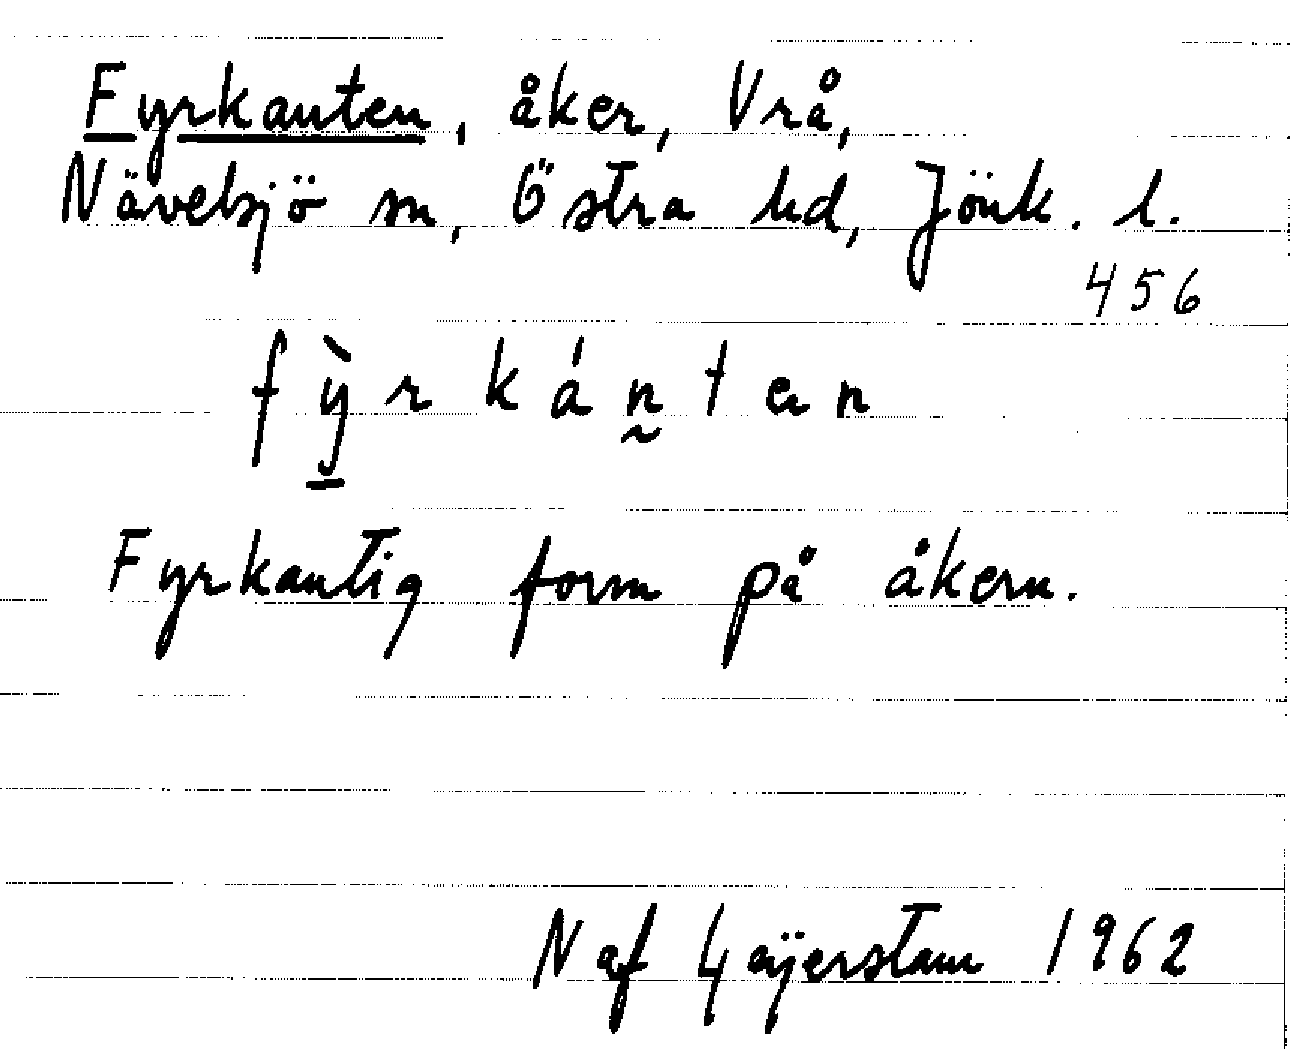 Fyrkanten, åker, Vrå,
Nävelsjö sn, Östra hd, Jönk. l.
456
f ỳ r k á n t e n
Fyrkantig form på åkern.
N af Geijerstam 1962